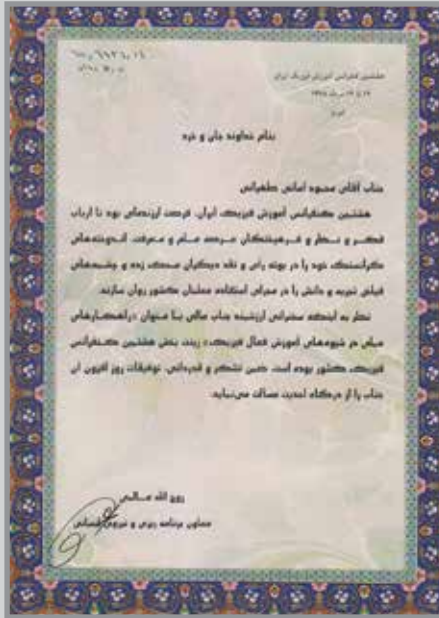 هشتمین کنفرانس آموزش فیزیک ایران
بنام خداوند جان و خرد
جناب آقای محمود امانی طهرانی
هشتمین کنفرانس آموزش فیزیک ایران، فرصت ارزنده‌ای بود تا ارباب
فکر و نظر و فرهیختگان عرصه علم و معرفت، اندوخته‌های
گرانسنگ خود را در بوته رای و نقد دیگران محک زده و چشمه‌های
فیاض تجربه و دانش را در مجرای استفاده معلمان کشور روان سازند.
نظر به اینکه سخنرانی ارزشمند جناب عالی با عنوان «راهکارهای
عملی در شیوه‌های آموزش فعال فیزیک» زینت بخش هشتمین کنفرانس
فیزیک کشور بوده است، ضمن تشکر و قدردانی، توفیقات روز افزون آن
جناب را از درگاه احدیت مسألت می‌نماید.
روح الله عالمی
معاون برنامه ریزی و نیروی انسانی